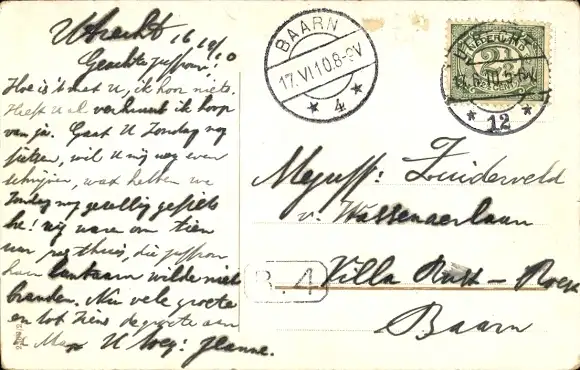 Utrecht 16/6/10
Geachte juffrou!
Hoe is 't met U, ik hoor niets.
Heeft U al verhuurd ik hoop
van ja. Gaat U Zondag nog
fietsen, wil U mij nog even
schrijven, wat hebben we
Zondag nog gezellig gefietst
hè! wij ware om tien
uur pas thuis, die juffrou
haar lantaarn wilde niet
branden. Nu vele groete
en tot ziens de groete aan
Max U toeg: Jeanne.
BAARN
17.VI.10.8-9V
4
NEDERLAND
2½
CENT
10.5-6V
12
Mejuff: Zuiderveld
v. Wassenaerlaan
Villa Rust-Roest
Baarn
B.4